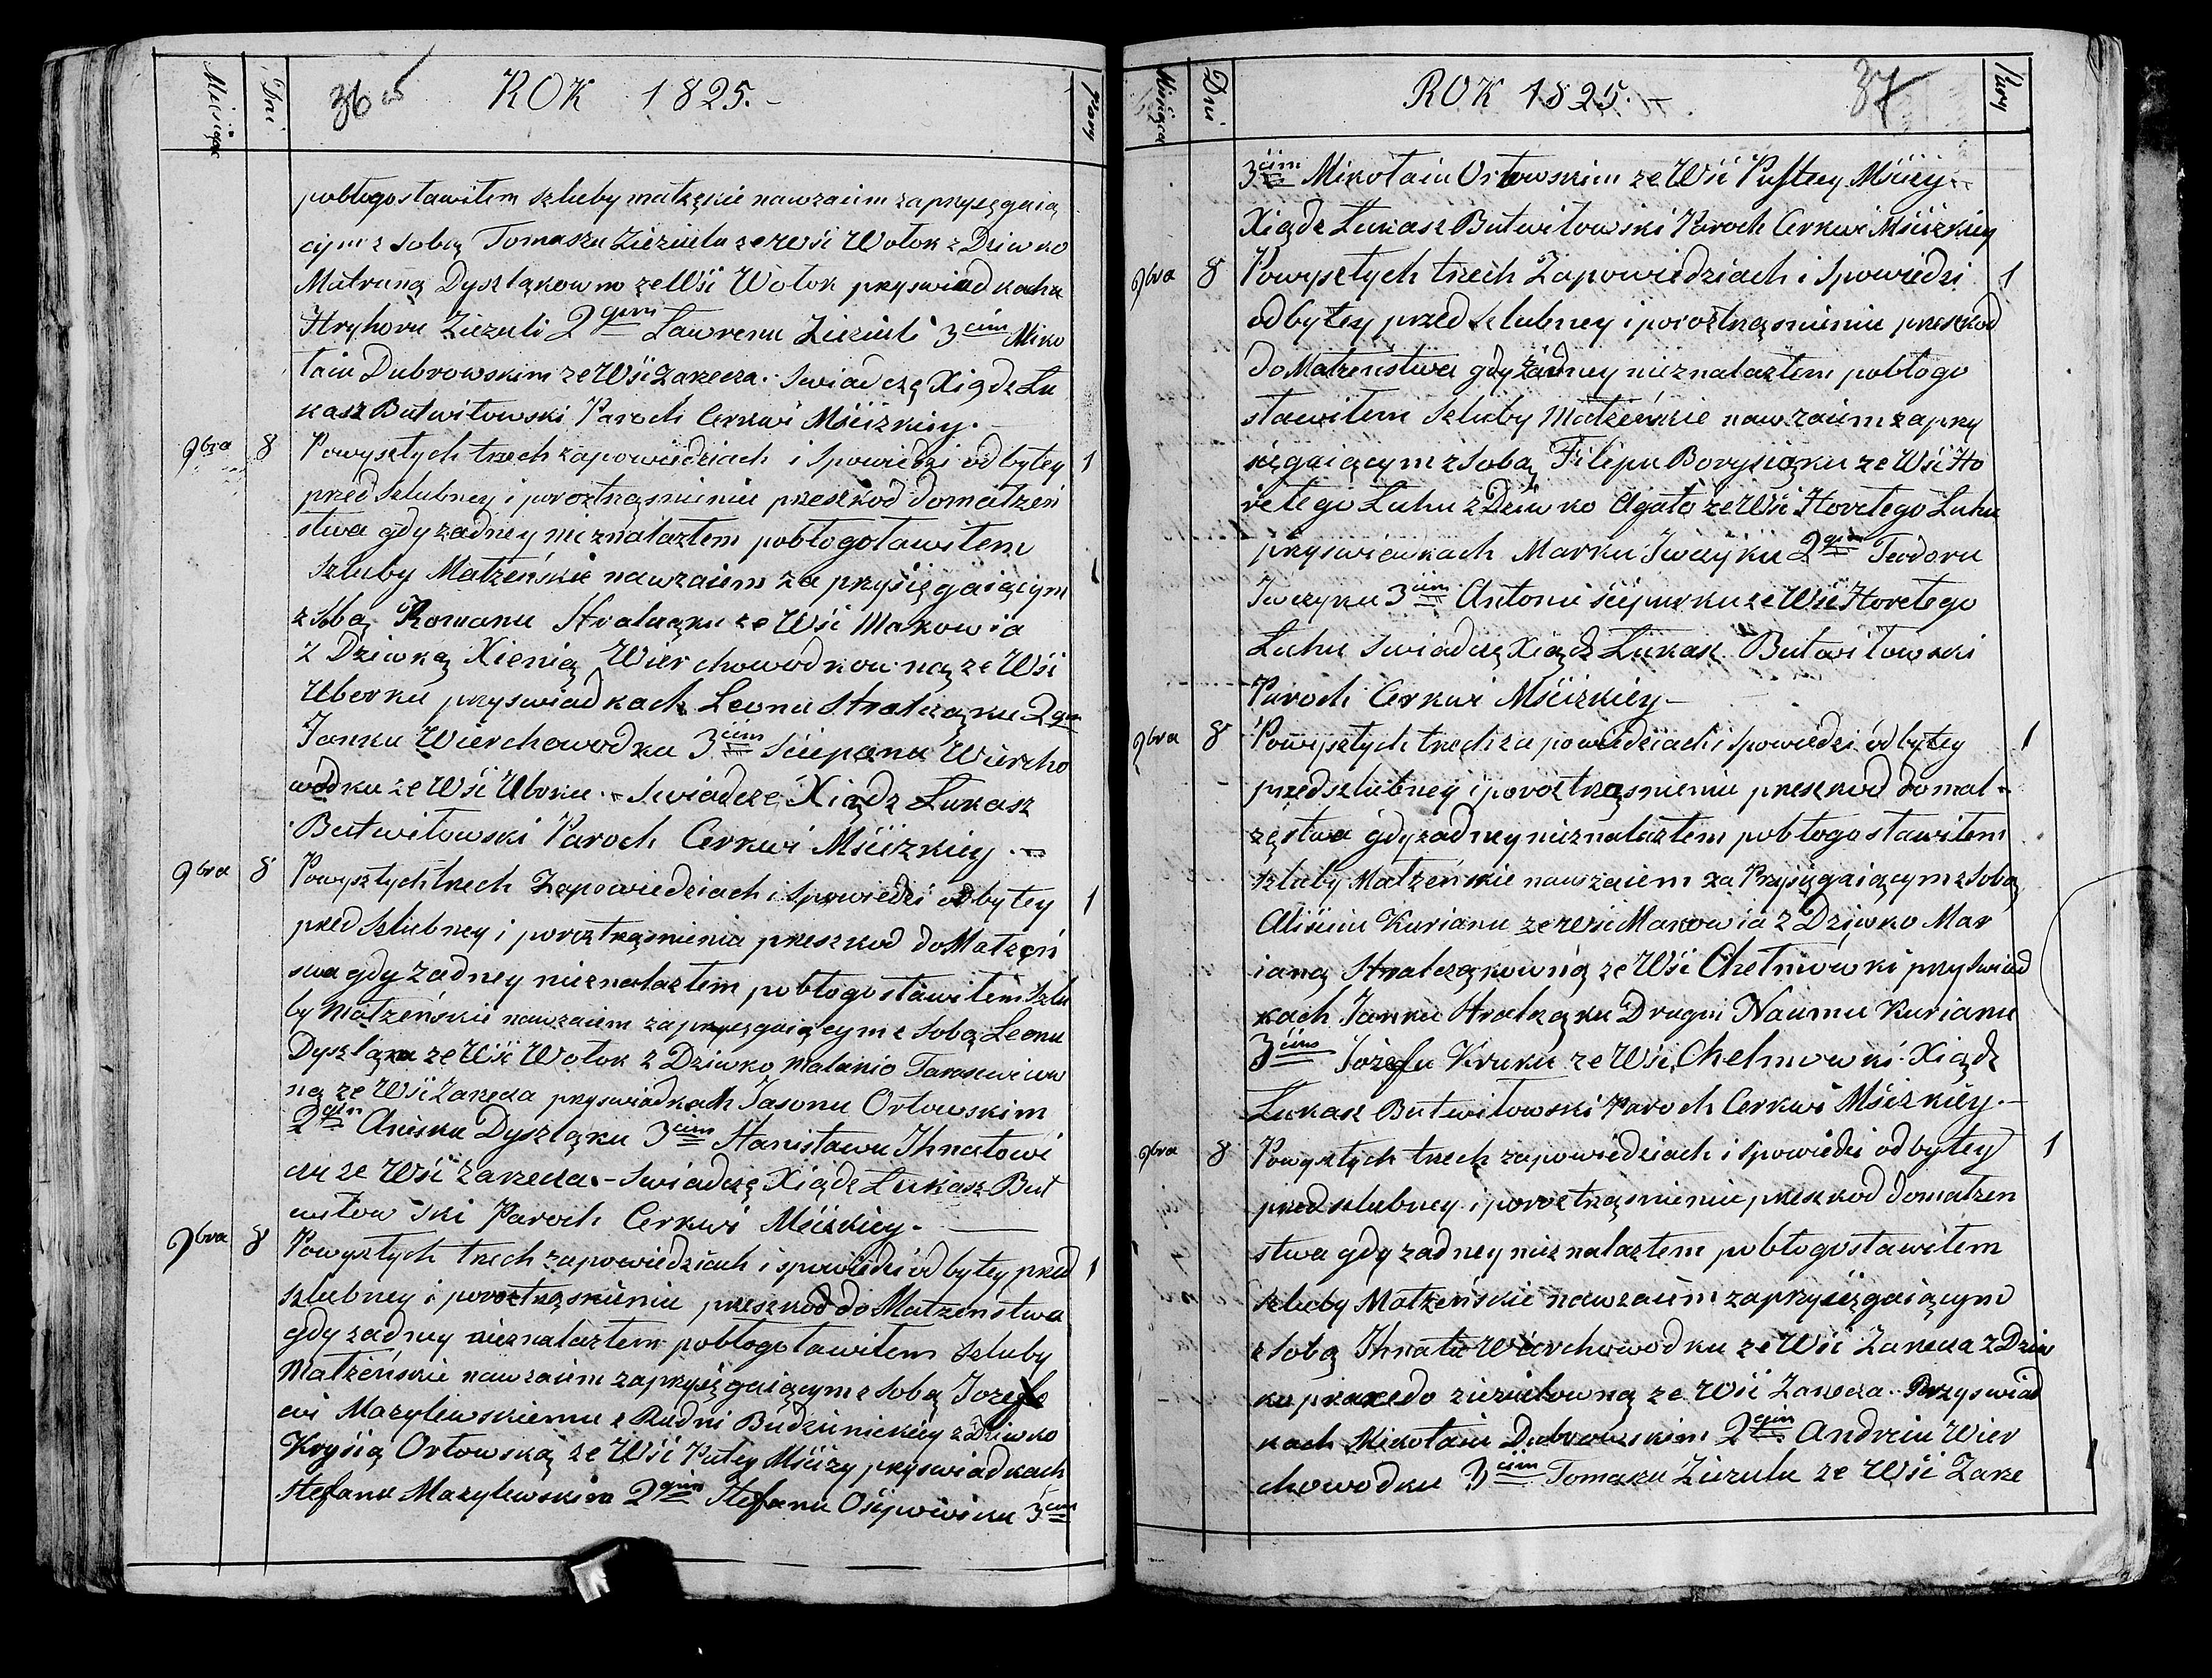 Miesiące Dni 36 ROK 1825.- Pary
pobłogosławiłem szluby małżękie nawzaiem zaprysęgaią
cym z Sobą Tomaszu Zieziulu ze wśi Wołok z Dziwko
Matruną Dyszląkowno ze Wśi Wołok pryswiadkacha
Hryhoru Ziezuli 2gim Lawrenu Zieziuli 3cim Miko
łaiu Dubrowskim ze Wśi Zarecza. Swiadczę Xiądz Łu
kasz Butwiłowski Paroch Cerkwi Mścizkiey.
9bra 8 Powyszłych trzech zapowiedziach i Spowiedzi odbytey 1
przed Szlubney i poroztrząsnieniu preszkod do małżeń
stwa gdy zadney nieznalazłem pobłogoławiłem
Szluby Małżeńskie nawzaiem za prysięgaiącym
z Sobą Romanu Stralcząku ze Wśi Makowia
z Dziwką Xienią Wierchowodkow ną ze Wśi
Uborku pryswiadkach Leonu Stralcząku 2gim
Janku Wierchowodku 3cim Sciepanu Wiercho
wodku ze Wśi Uborku. Swiadczę Xiądz Łukasz
Butwiłowski Paroch Cerkwi Mścizkiey.
9bra 8 Powyszłych trzech Zapowiedziach i Spowiedzi odbytey 1
przed Szlubney i poroztrząsnieniu preszkod do Małżęń
swa gdy żadney nieznalazłem pobłogosławiłem Szlu
by Małżeńskie nawzaiem zapryęgaiącym z Sobą Leonu
Dyszląku ze Wśi Wołok z Dziwko Malanio Tarasewiczow
ną ze Wśi Zarecza pryswiadkach Jasonu Orłowskim
2gim Anisku Dyszląku 3cim Stanisławu Ihnatowi
czu ze Wśi Zarecza.- Swiadczę Xiądz Łukasz But
wiłow ski Paroch Cerkwi Mścizkiey.
9bra 8 Powyszłych trzech zapowiedziach i spowiedzi odbytey przed 1
szlubney i poroztrząsnieniu preszkod do Małżeństwa
gdy zadney nieznalazłem pobłogoławiłem Szluby
Małżeńskie nawzaiem zapryięgaiącym z Sobą Jozefo
wi Mazylewskiemu z Rudni Budzienickiey z Dziwko
Krysią Orłowską ze Wśi Putey Mścizy pryswiadkach
Stefanu Mazylewskim 2gim Stefanu Osipowiczu 3cim
Miesiące Dni ROK 1825.- 37 Pary
3cim Mikołaiu Orłowskim ze Wśi Pustey Mściży.
Xiądz Łukasz Butwiłowski Paroch Cerkwi Mścizkiey
9bra 8 Powyszłych trzech Zapowiedziach i Spowiedzi 1
odbytey przed Szlubney i poroztrząsnieniu preszkod
do Małżeństwa gdy żadney nieznalazłem pobłogo
sławiłem Szluby Małżeńskie nawzaiem zapry
sięgaiącym z Sobą Filipu Borysiąku ze Wśi Ho
rełego Luhu z Dziwko Agato ze Wśi Horełego Luhu
pryswiadkach Marku Jwczyku 2gim Teodoru
Jwczyku 3cim Antonu ze Wśi Horełego
Luhu Swiadczę Xiądz Łukasz Butwiłowski
Paroch Cerkwi Mścizkiey-
9bra 8 Powyszłych trzech zapowiedziach i Spowiedzi odbytey 1
przed szlubney i poroztrząsnieniu preszkod do mał-
zęstwa gdy zadney nieznalazłem pobłogosławiłem
szluby Małżeńskie nawzaiem za Prysięgaiącym z Sobą
Alisieiu Kurianu ze Wśi Makowia z Dziwko Mar
ianą Stralcząkowną ze Wśi Chełmówki pry Swiad
kach Janku Stralcząku Drugni Naumu Kurianu
3cim Jozefu Kruku ze Wśi Chełmowki. Xiądz
Łukasz Butwiłowski Paroch Cerkwi Mścizkiey.-
9bra 8 Powyszłych trzech zapowiedziach i Spowiedzi odbytey 1
przed szlubney i poroztrząsnieniu preszkod do małżen
stwa gdy zadney nieznalazłem pobłogosławiłem
Szluby Małżeńskie nawzaiem zaprysięgaiącym
z Sobą Ihnatu Wierchowodku ze Wśi Zarecza z Dziw
ko praxedo ziziulowną ze Wśi Zarecza. Przyswiad
kach Mikołaiu Dubrowskim 2gim Andreiu Wier
chowodku 3cim Tomaszu Ziezulu ze Wśi Zare